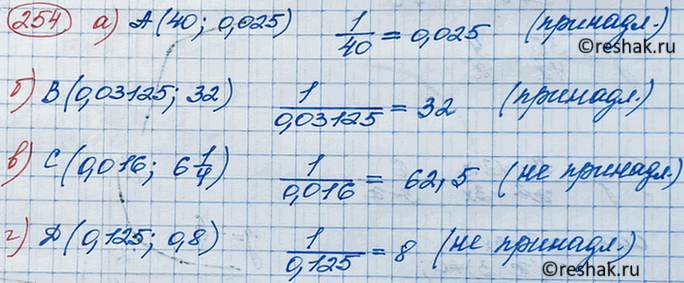 254 а) А(40; 0,025) 1/40 = 0,025 (принадл.)
©reshak.ru
б) В(0,03125; 32) 1/0,03125 = 32 (принадл.)
в) С(0,016; 6 1/4) 1/0,016 = 62,5 (не принадл.)
г) Д(0,125; 0,8) 1/0,125 = 8 (не принадл.)
©reshak.ru